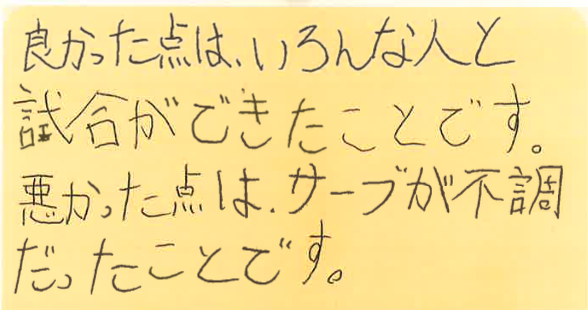 良かった点は、いろんな人と
試合ができたことです。
悪かった点は、サーブが不調
だったことです。